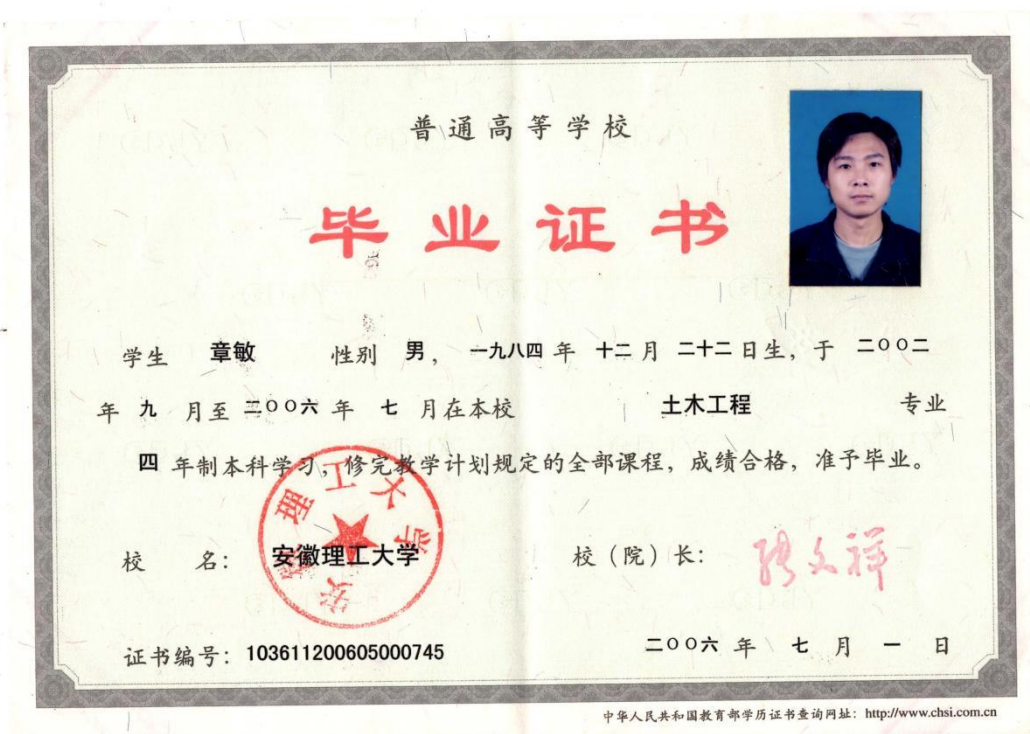 普通高等学校
毕业证书
学生 章敏 性别 男，一九八四 年 十二 月 二十二 日生，于 二〇〇二
年 九 月至 二〇〇六 年 七 月在本校 土木工程 专业
四 年制本科学习，修完教学计划规定的全部课程，成绩合格，准予毕业。
安徽理工大学
校 名： 安徽理工大学 校（院）长： 张文祥
证书编号：103611200605000745 二〇〇六 年 七 月 一 日
中华人民共和国教育部学历证书查询网址：http://www.chsi.com.cn